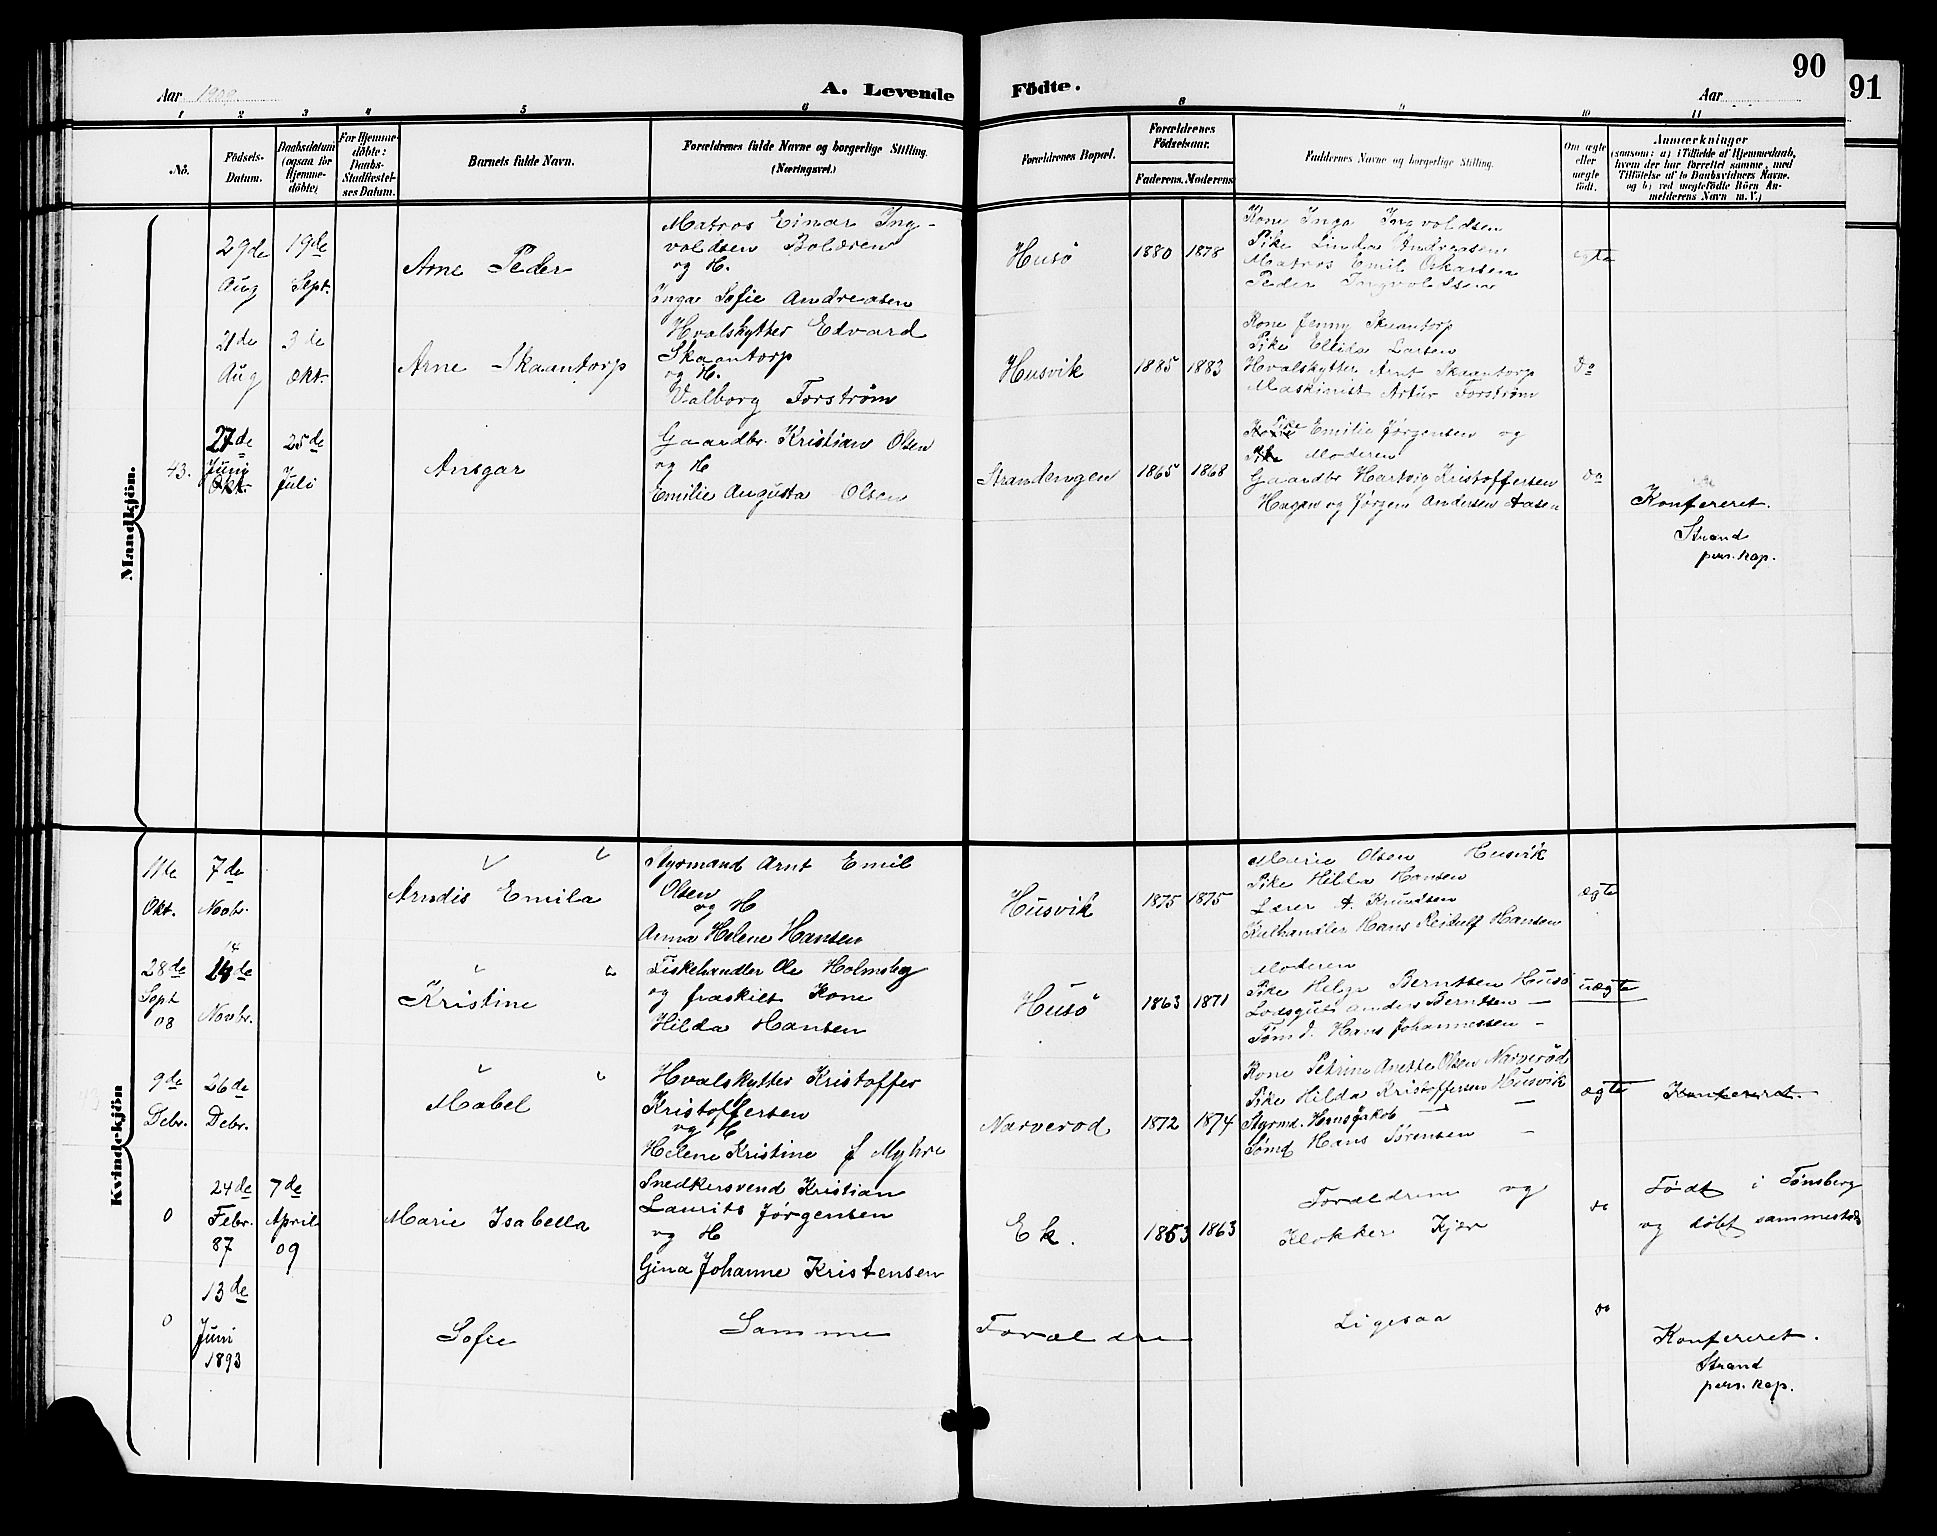 90
91
Aar 1909
A. Levende Födte.
Aar
1 2 3 4 5 6 8 9 10 11
No.
Födsels-
Datum.
Daabsdatum
(ogsaa for
Hjemme-
döbte)
For Hjemme-
döbte:
Daabs-
Stadfæstel-
ses Datum.
Barnets fulde Navn.
Forældrenes fulde Navne og borgerlige Stilling.
(Næringsvei.)
Forældrenes Bopæl.
Forældrenes
Födselsaar.
Faderens. Moderens
Faddernes Navne og borgerlige Stilling.
Om ægte
eller
uægte
födt.
Anmærkninger
(saasom: a) i Tilfælde af Hjemmedaab,
hvem der har forrettet samme, med
Tilföielse af to Daabsvidners Navne.
og b) ved uægtefödte Börn An-
melderens Navn m. V.)
Mandkjön.
29de
Aug
19de
Sept.
Arne Peder
Matros Einar Ing-
voldsen Bolæren
og H.
Inga Sofie Andreasen
Husö
1880 1878
Kone Inga Ingvoldsen
Pike Linda Andreasen
Matros Emil Oskarsen
Peder Ingvoldsen
egte
21de
Aug
3de
Okt.
Arne Skaantorp
Hvalskytter Edvard
Skaantorp
og H.
Valborg Forstrøm
Husvik
1885 1883
Kone Jenny Skaantorp
Pike Ellida Larsen
Hvalskytter Arnt Skaantorp
Maskinist Artur Forstrøm
do
43.
27de
Juni
Okt.
25de
Juli
Ansgar
Gaardbr. Kristian Olsen
og H
Emilie Augusta Olsen
Strandengen
1865 1868
Kone Pike Emilie Jørgensen og
Pike Moderen
Gaardbr Hartvig Kristoffersen
Haugan og Jørgen Andersen Aasen
do
Konfereret.
Strand
pers.kap.
Kvindekjön
11te
Okt.
7de
Novbr.
Arndis Emila
Styrmand Arnt Emil
Olsen
og H
Anna Helene Hansen
Husvik
1875 1875
Marie Olsen Husvik
Pike Hilda Hansen
Lærer A. Knudsen
Kulhandler Hans Reidulf Hansen
ægte
28de
Sept
08
14
14de
Novbr.
Kristine
Fiskehandler Ole Holmsbg
og fraskilt Kone
Hilda Hansen
Husö
1863 1871
Moderen
Pike Helga Berntsen Husö
Losgut Anders Berntsen —
Tømd. Hans Johannessen —
uægte
9de
Debr.
26de
Debr.
Mabel
Hvalskytter Kristoffer
Kristoffersen
og H
Helene Kristine f Myhre
Narverod
1872 1874
Kone Petrine Anette Olsen Narveröd
Pike Hilda Kristoffersen Husvik
Styrmd. Hans Jakob — —
Sømd Hans Sörensen —
ægte
Konfereret.
0
24de
Febr.
87
7de
April
09
Marie Isabella
Snedkersvend Kristian
Laurits Jørgensen
og H
Gina Johanne Kristensen
Ek.
1853 1863
Forældrene og
Klokker Kjær
do
Födt i Tönsberg
og döbt sammesteds
0
13de
Juni
1893
Sofie
Samme Forældre
Ligesaa
do
Konfereret.
Strand
pers.kap.